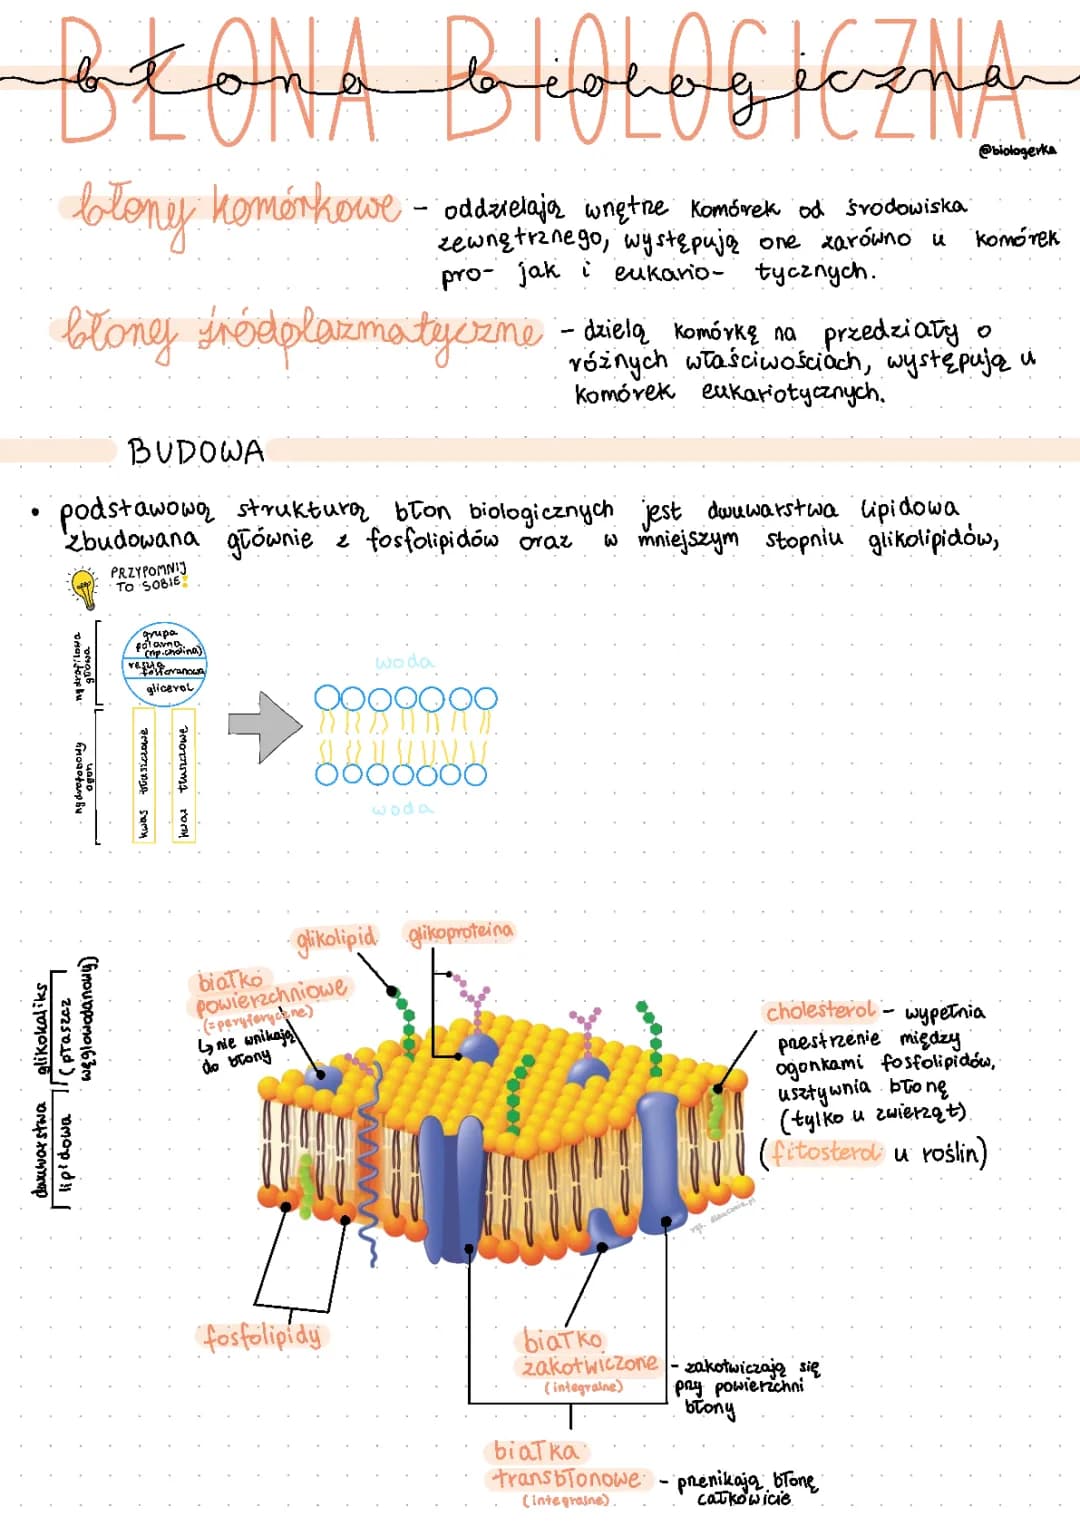 BŁONA BIOLOGICZNA
błona biologiczna
@biologerka
błony komórkowe - oddzielają wnętrze komórek od środowiska
zewnętrznego, występują one zarówno u komórek
pro- jak i eukario- tycznych.
błony śródplazmatyczne - dzielą komórkę na przedziały o
różnych właściwościach, występują u
komórek eukariotycznych.
BUDOWA
• podstawową strukturą błon biologicznych jest dwuwarstwa lipidowa
zbudowana głównie z fosfolipidów oraz w mniejszym stopniu glikolipidów,
PRZYPOMNIJ
TO SOBIE!
hydrofilowa
głowa
grupa
polarna
(np. cholina)
reszta
fosforanowa
glicerol
hydrofobowy
ogon
kwas tłuszczowe
kwas tłuszczowe
woda
woda
glikolipid
glikoproteina
białko
powierzchniowe
(=peryferyczne)
↳ nie wnikają
do błony
glikokaliks
(płaszcz
węglowodanowy)
dwuwarstwa
lipidowa
cholesterol - wypełnia
przestrzenie między
ogonkami fosfolipidów,
usztywnia błonę
(tylko u zwierząt)
(fitosterol u roślin)
fosfolipidy
białko
zakotwiczone
(integralne)
- zakotwiczają się
przy powierzchni
błony
białka
transbłonowe
(integralne)
- przenikają błonę
całkowicie